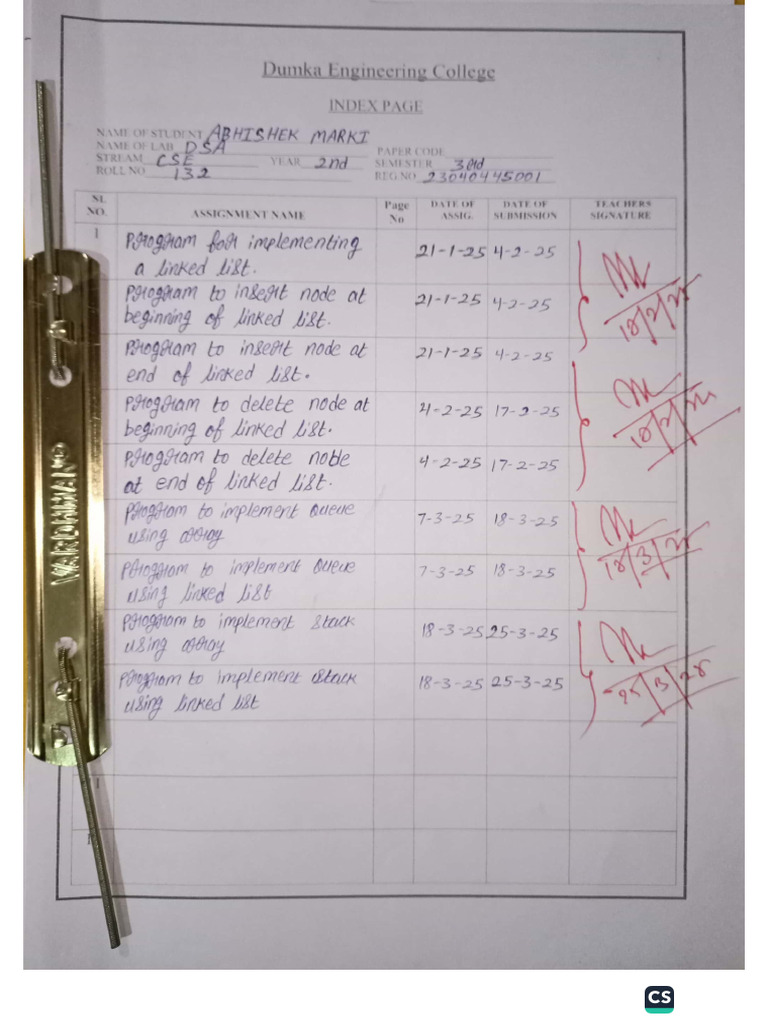 Dumka Engineering College
INDEX PAGE
NAME OF STUDENT ABHISHEK MARKI
NAME OF LAB DSA PAPER CODE
STREAM CSE YEAR 2nd SEMESTER 3rd
ROLL NO 132 REG NO 23040445001
SL NO. ASSIGNMENT NAME Page No DATE OF ASSIG. DATE OF SUBMISSION TEACHERS SIGNATURE
1 Program for implementing 21-1-25 4-2-25
a linked list.
Program to insert node at 21-1-25 4-2-25
beginning of linked list.
18/2/25
Program to insert node at 21-1-25 4-2-25
end of linked list.
Program to delete node at 4-2-25 17-2-25
beginning of linked list.
Program to delete node 4-2-25 17-2-25
at end of linked list.
Program to implement Queue 7-3-25 18-3-25
using array
18/3/25
Program to implement Queue 7-3-25 18-3-25
using linked list
Program to implement stack 18-3-25 25-3-25
using array
Program to implement stack 18-3-25 25-3-25
using linked list
25/3/25
1
VARDHMAN
CS